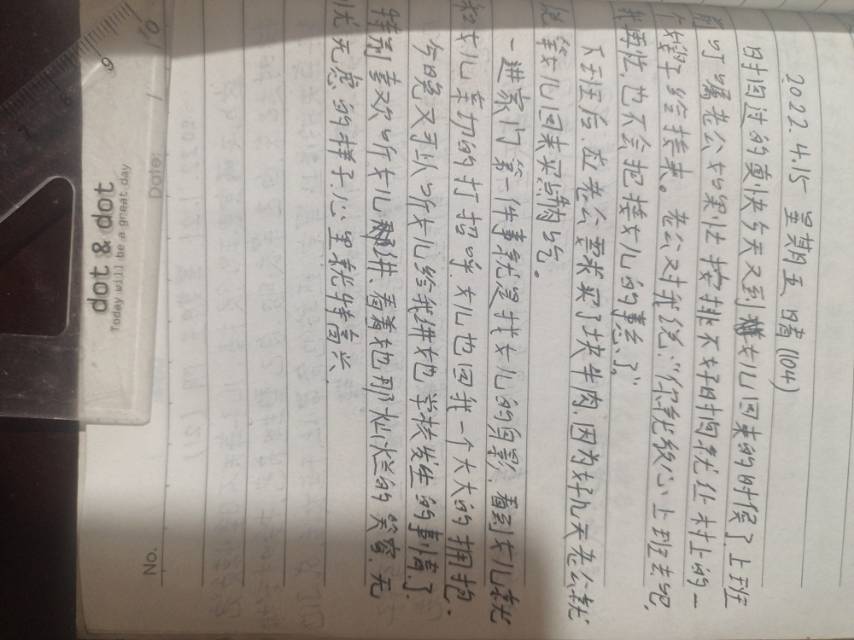 2022. 4.15 星期五 晴 (104)
时间过的真快今天又到女儿回来的时候了.上班
叮嘱老公如果让按排不好时间就让村上的一
个嫂子给接来。老公对我说:“你就放心上班去吧.
我再忙.也不会把接女儿的事忘了”。
下班后.应老公要求买了块牛肉.因为好几天老公就
说等女儿回来买点肉吃。
一进家门第一件事就是找女儿的身影.看到女儿就
和女儿亲切的打招呼.女儿也回我一个大大的拥抱.
今晚又可以听女儿给我讲她学校发生的事情了.
特别喜欢听女儿讲.看着她那灿烂的笑容.无
忧无虑的样子.心里就特高兴.
No.
Date:
dot & dot
Today will be a great day
9
10